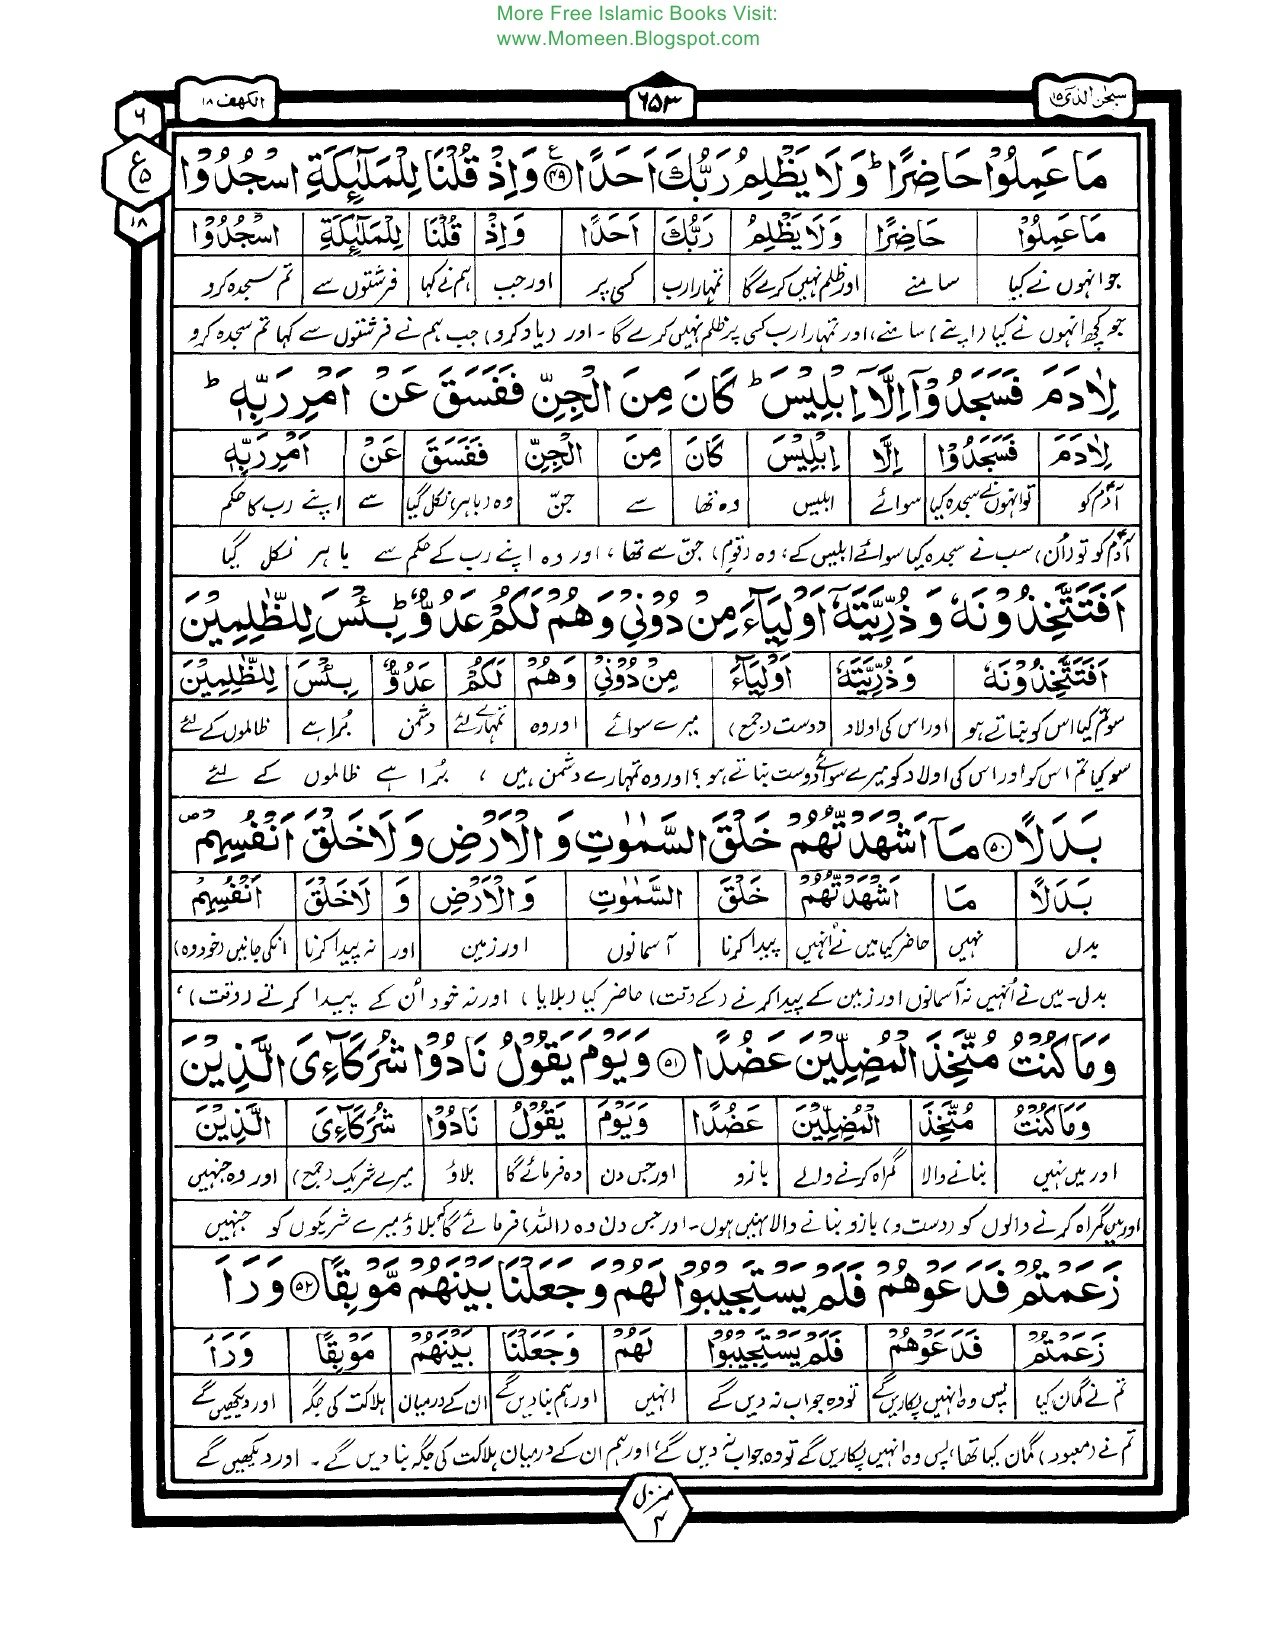 More Free Islamic Books Visit:
www.Momeen.Blogspot.com
سبحٰن الذی ۱۵ ۶۵۳ الکهف ۱۸
۶
ع ۵
۱۸
مَا عَمِلُوۡا حَاضِرًا ؕ وَلَا يَظۡلِمُ رَبُّكَ اَحَدًا ﴿۴۹﴾ وَاِذۡ قُلۡنَا لِلۡمَلٰٓئِكَةِ اسۡجُدُوۡا
مَا عَمِلُوۡا | حَاضِرًا | وَلَا يَظۡلِمُ | رَبُّكَ | اَحَدًا | وَاِذۡ | قُلۡنَا | لِلۡمَلٰٓئِكَةِ | اسۡجُدُوۡا
جو انہوں نے کیا | سامنے | اور ظلم نہیں کرے گا | تمہارا رب | کسی پر | اور جب | ہم نے کہا | فرشتوں سے | تم سجدہ کرو
جو کچھ انہوں نے کیا (اپنے) سامنے، اور تمہارا رب کسی پر ظلم نہیں کرے گا ۔ اور (یاد کرو) جب ہم نے فرشتوں سے کہا تم سجدہ کرو
لِاٰدَمَ فَسَجَدُوۡۤا اِلَّاۤ اِبۡلِيۡسَ ؕ كَانَ مِنَ الۡجِنِّ فَفَسَقَ عَنۡ اَمۡرِ رَبِّهٖ ؕ
لِاٰدَمَ | فَسَجَدُوۡا | اِلَّا | اِبۡلِيۡسَ | كَانَ | مِنَ | الۡجِنِّ | فَفَسَقَ | عَنۡ | اَمۡرِ رَبِّهٖ
آدمؑ کو | تو انہوں نے سجدہ کیا | سوائے | ابلیس | وہ تھا | سے | جنّ | وہ (باہر) نکل گیا | سے | اپنے رب کا حکم
آدمؑ کو تو (اُن) سب نے سجدہ کیا سوائے ابلیس کے، وہ (قوم) جنّ سے تھا، اور وہ اپنے رب کے حکم سے باہر نکل گیا
اَفَتَتَّخِذُوۡنَهٗ وَ ذُرِّيَّتَهٗۤ اَوۡلِيَآءَ مِنۡ دُوۡنِىۡ وَهُمۡ لَكُمۡ عَدُوٌّ ؕ بِئۡسَ لِلظّٰلِمِيۡنَ
اَفَتَتَّخِذُوۡنَهٗ | وَ ذُرِّيَّتَهٗۤ | اَوۡلِيَآءَ | مِنۡ دُوۡنِىۡ | وَهُمۡ | لَكُمۡ | عَدُوٌّ | بِئۡسَ | لِلظّٰلِمِيۡنَ
سو تم کیا اس کو بناتے ہو | اور اس کی اولاد | دوست (جمع) | میرے سوائے | اور وہ | تمہارے لئے | دشمن | بُرا ہے | ظالموں کے لئے
سو کیا تم اس کو اور اس کی اولاد کو میرے سوائے دوست بناتے ہو؟ اور وہ تمہارے دشمن ہیں، بُرا ہے ظالموں کے لئے
بَدَلًا ﴿۵۰﴾ مَاۤ اَشۡهَدْتُّهُمۡ خَلۡقَ السَّمٰوٰتِ وَ الۡاَرۡضِ وَ لَا خَلۡقَ اَنۡفُسِهِمۡ ص
بَدَلًا | مَا | اَشۡهَدْتُّهُمۡ | خَلۡقَ | السَّمٰوٰتِ | وَ الۡاَرۡضِ | وَ | لَا خَلۡقَ | اَنۡفُسِهِمۡ
بدل | نہیں | حاضر کیا میں نے انہیں | پیدا کرنا | آسمانوں | اور زمین | اور | نہ پیدا کرنا | انکی جانیں (خود وہ)
بدل ۔ میں نے اُنہیں نہ آسمانوں اور زمین کے پیدا کرنے (کے وقت) حاضر کیا (بلایا) اور نہ خود اُن کے پیدا کرنے (وقت)،
وَمَا كُنۡتُ مُتَّخِذَ الۡمُضِلِّيۡنَ عَضُدًا ﴿۵۱﴾ وَيَوۡمَ يَقُوۡلُ نَادُوۡا شُرَكَآءِىَ الَّذِيۡنَ
وَمَا كُنۡتُ | مُتَّخِذَ | الۡمُضِلِّيۡنَ | عَضُدًا | وَيَوۡمَ | يَقُوۡلُ | نَادُوۡا | شُرَكَآءِىَ | الَّذِيۡنَ
اور میں نہیں | بنانے والا | گمراہ کرنے والے | بازو | اور جس دن | وہ فرمائے گا | بلاؤ | میرے شریک (جمع) | اور وہ جنہیں
اور میں گمراہ کرنے والوں کو (دست و) بازو بنانے والا نہیں ہوں ۔ اور جس دن وہ (اللہ) فرمائے گا بلاؤ میرے شریکوں کو جنہیں
زَعَمۡتُمۡ فَدَعَوۡهُمۡ فَلَمۡ يَسۡتَجِيۡبُوۡا لَهُمۡ وَجَعَلۡنَا بَيۡنَهُمۡ مَّوۡبِقًا ﴿۵۲﴾ وَرَاَ
زَعَمۡتُمۡ | فَدَعَوۡهُمۡ | فَلَمۡ يَسۡتَجِيۡبُوۡا | لَهُمۡ | وَجَعَلۡنَا | بَيۡنَهُمۡ | مَوۡبِقًا | وَرَاَ
تم نے گمان کیا | پس وہ انہیں پکاریں گے | تو وہ جواب نہ دیں گے | انہیں | اور ہم بنا دیں گے | ان کے درمیان | ہلاکت کی جگہ | اور دیکھیں گے
تم نے (معبود) گمان کیا تھا، پس وہ انہیں پکاریں گے تو وہ جواب نہ دیں گے، اور ہم ان کے درمیان ہلاکت کی جگہ بنا دیں گے ۔ اور دیکھیں گے
منزل
۴